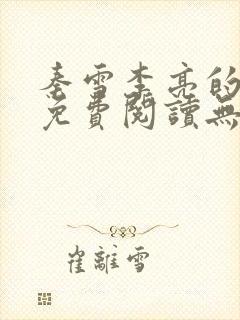 秦雪李亮的
免費閱讀無
崔離雪